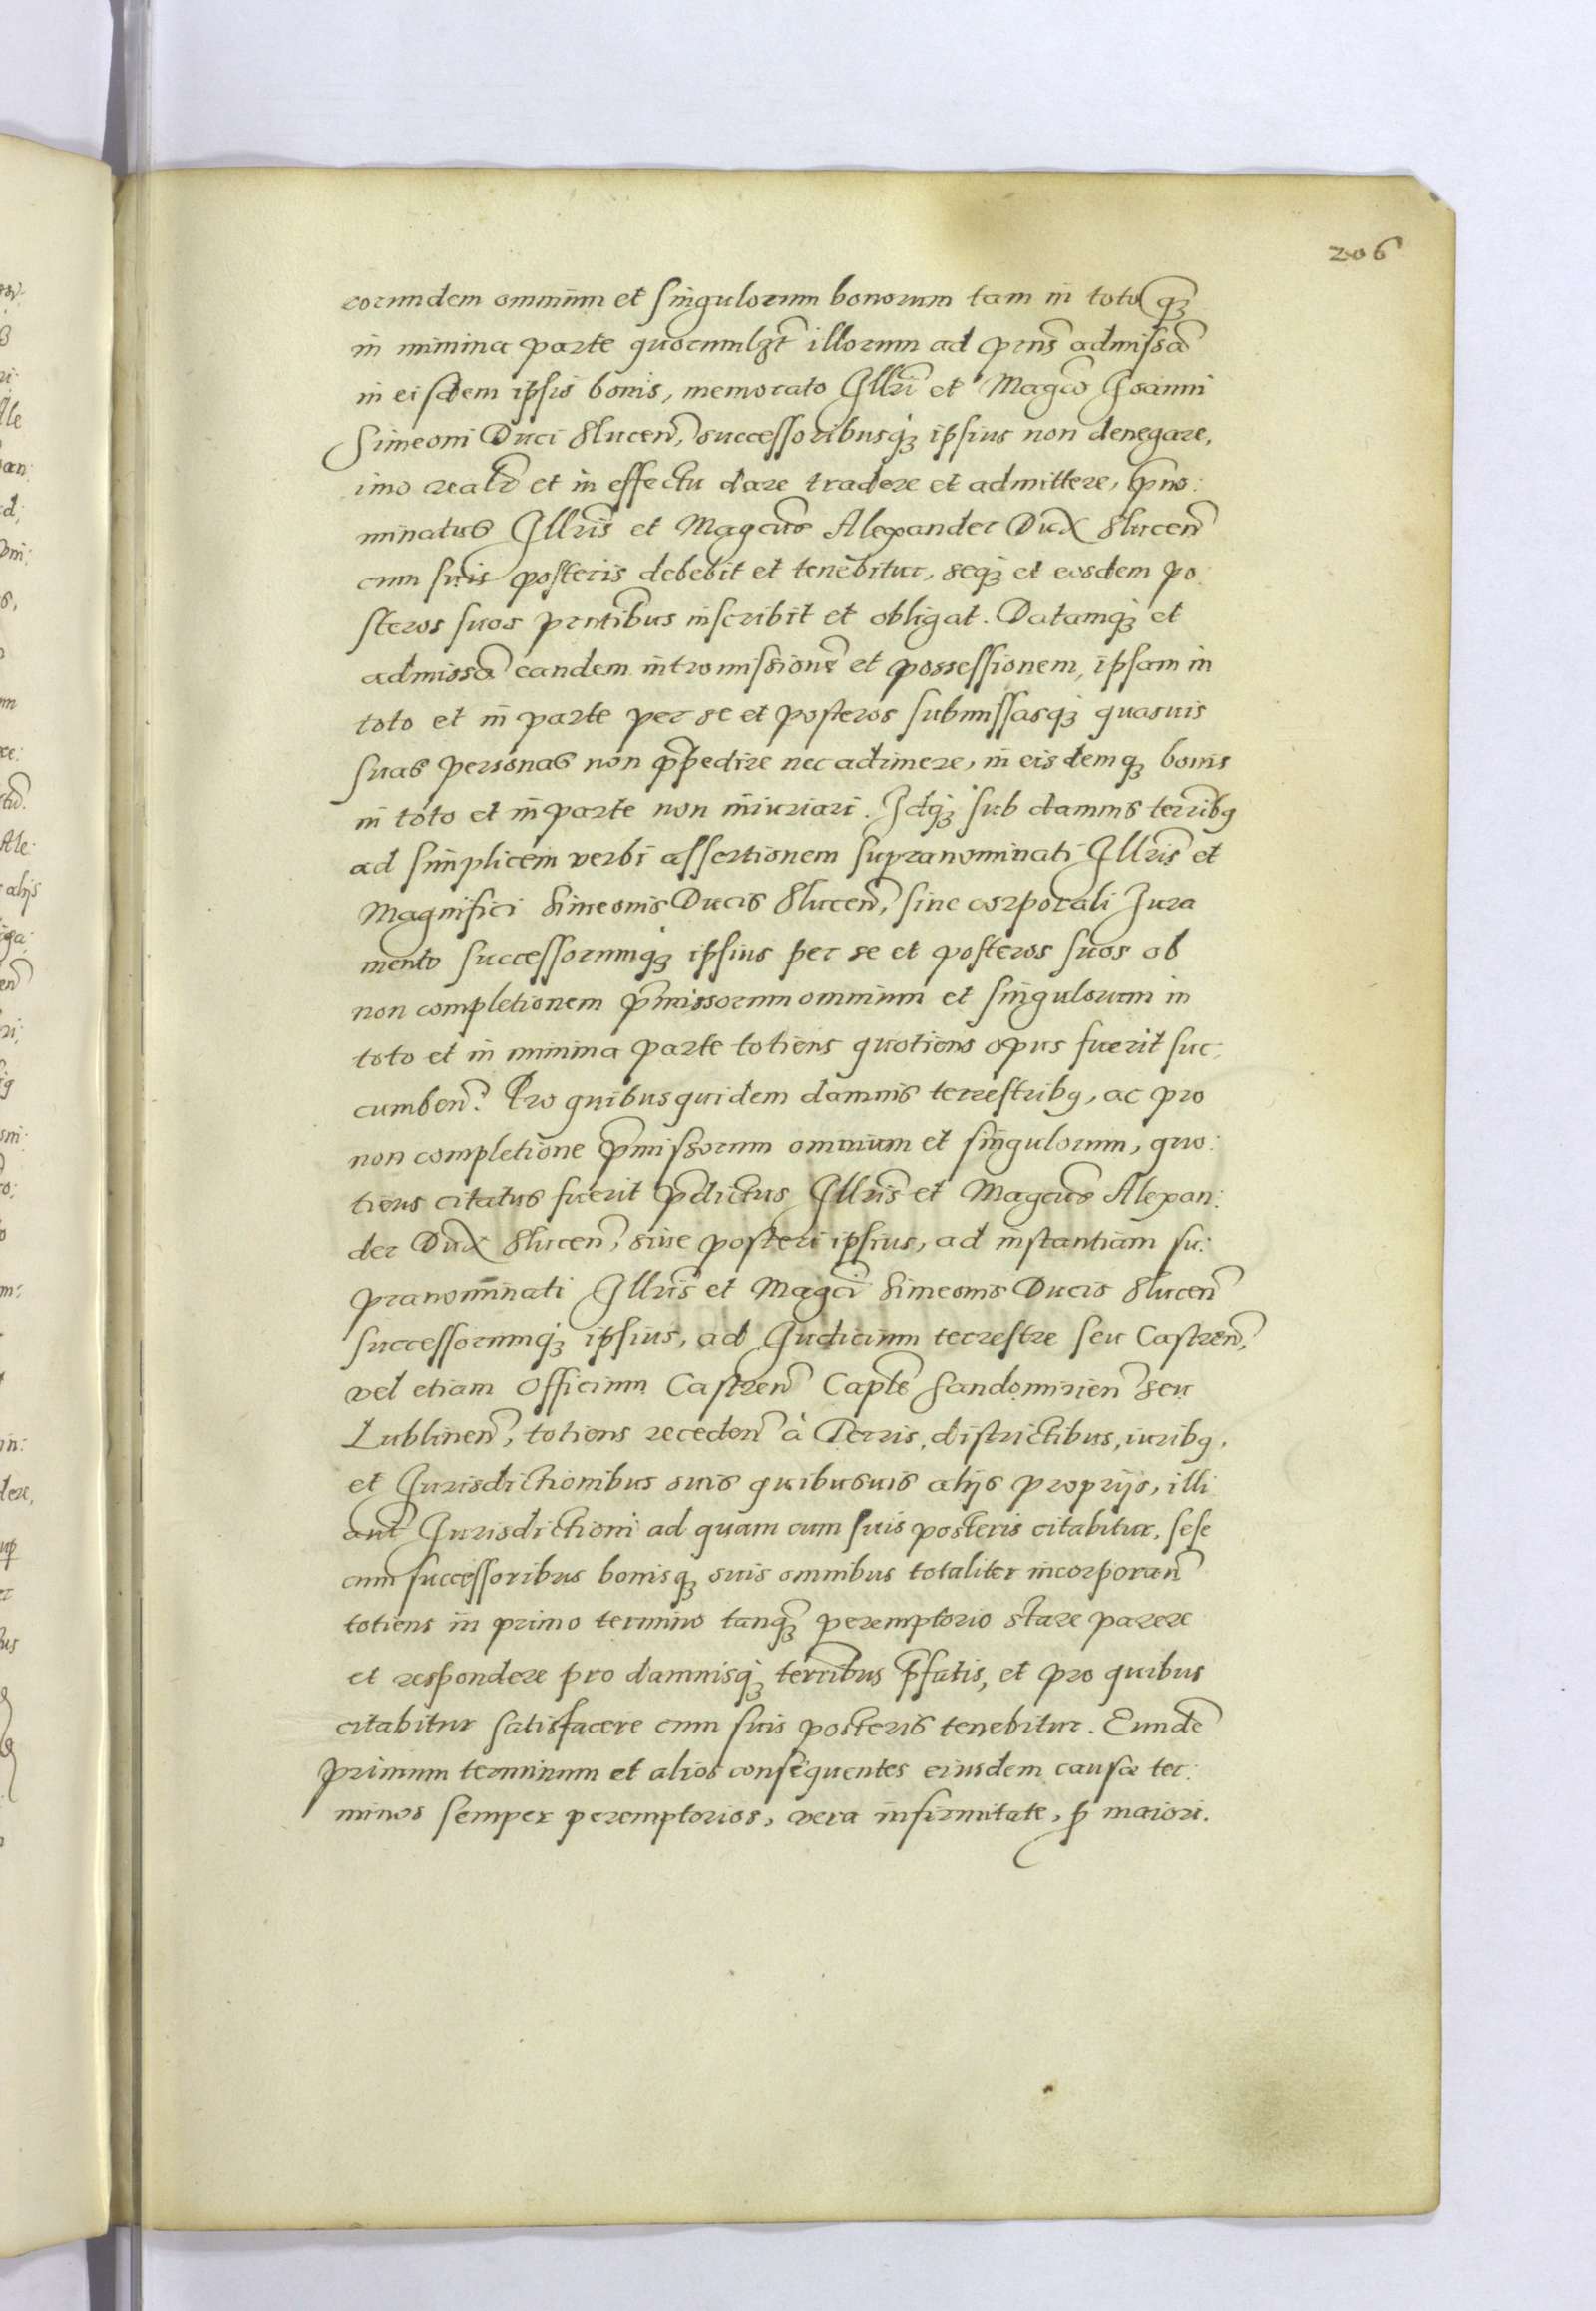 206
eorundem omnium et singulorum bonorum tam in toto q̃ꝫ
in minima parte quorumlꝫt illorum ad prñs admissã
in eisdem ipsis bonis, memorato Illri͂ et Magco͂ Joanni
Simeoni Duci Slucen͂, successoribusqꝫ ipsius non denegare,
imo realr͂ et in effectu dare tradere et admittere, p͂no:
minatus Illris͂ et Magcus͂ Alexander Dux Slucen͂
cum suis posteris debebit et tenebitur, seqꝫ et eosdem po:
steros suos prntibus͂ inscribit et obligat. Datamqꝫ et
admissã eandem intromissionẽ et possessionem, ipsam in
toto et in parte per se et posteros submissasqꝫ quasuis
suas personas non p͂pedire nec adimere, in eisdemqꝫ bonis
in toto et in parte non iniuriari. Idqꝫ sub damnis terribꝰ͂
ad simplicem verbi assertionem supranominati Illris͂ et
Magnifici Simeonis Ducis Slucen͂, sine corporali Jura
mento successorumqꝫ ipsius per se et posteros suos ob
non completionem p͂missorum omnium et singulorum in
toto et in minima parte totiens quotiens opus fuerit suc:
cumben͂. Pro quibusquidem damnis terrestribꝰ, ac pro
non completione p͂missorum omnium et singulorum, quo:
tiens citatus fuerit p͂dictus Illris͂ et Magcus͂ Alexan:
der Dux Slucen͂, siue posteri ipsius, ad instantiam su:
pranominati Illris͂ et Magci͂ Simeonis Ducis Slucen͂
successorumqꝫ ipsius, ad Judicium terrestre seu Castren͂,
vel etiam Officium Castren͂ Capte͂ Sandomirien͂ seu
Lublinen͂, totiens receden͂ à Terris, districtibus, iuribꝰ,
et Jurisdictionibus suis quibusuis alijs proprijs, illi
aut͂ Jurisdictioni ad quam cum suis posteris citabitur, sese
cum successoribus bonisqꝫ suis omnibus totaliter incorporan͂
totiens in primo termino tanq̃ꝫ peremptorio stare parere
et respondere pro damnisqꝫ terribus͂ p͂fatis, et pro quibus
citabitur satisfacere cum suis posteris tenebitur. Eundẽ
primum terminum et alios consequentes eiusdem causæ ter:
minos semper peremptorios, vera infirmitate, ꝑ maiori.